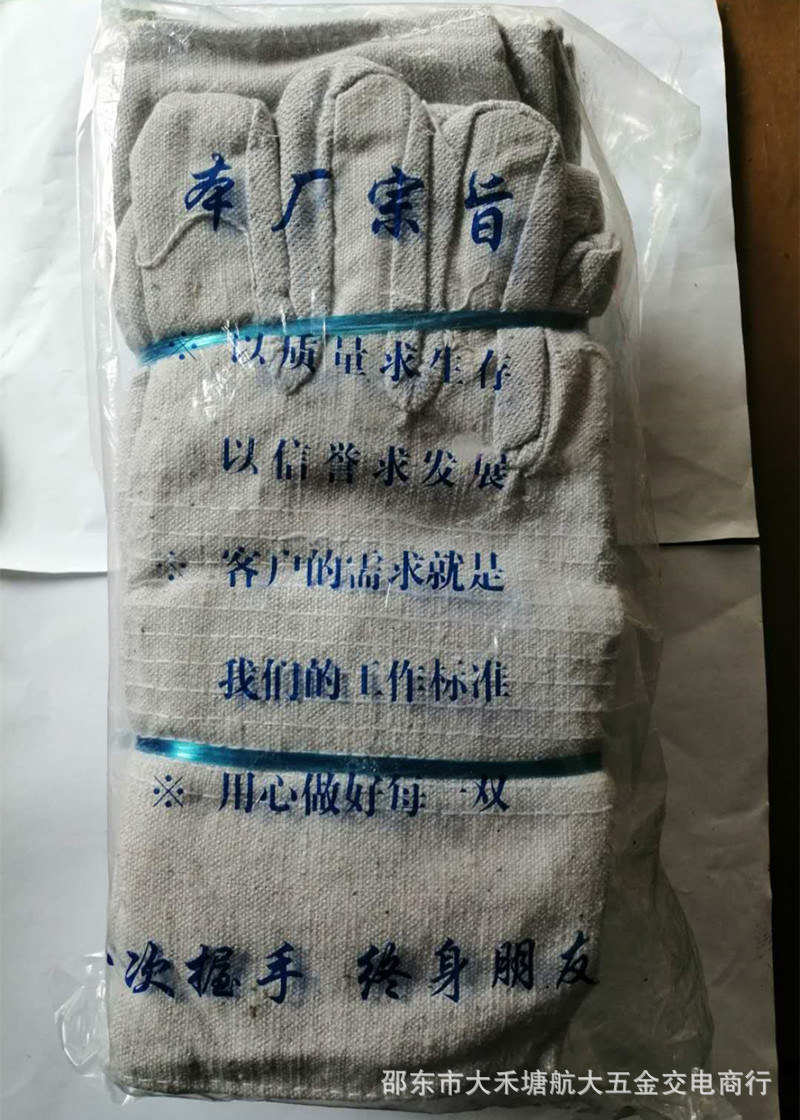 本厂宗旨
※ 以质量求生存
以信誉求发展
※ 客户的需求就是
我们的工作标准
※ 用心做好每一双
一次握手 终身朋友
邵东市大禾塘航大五金交电商行